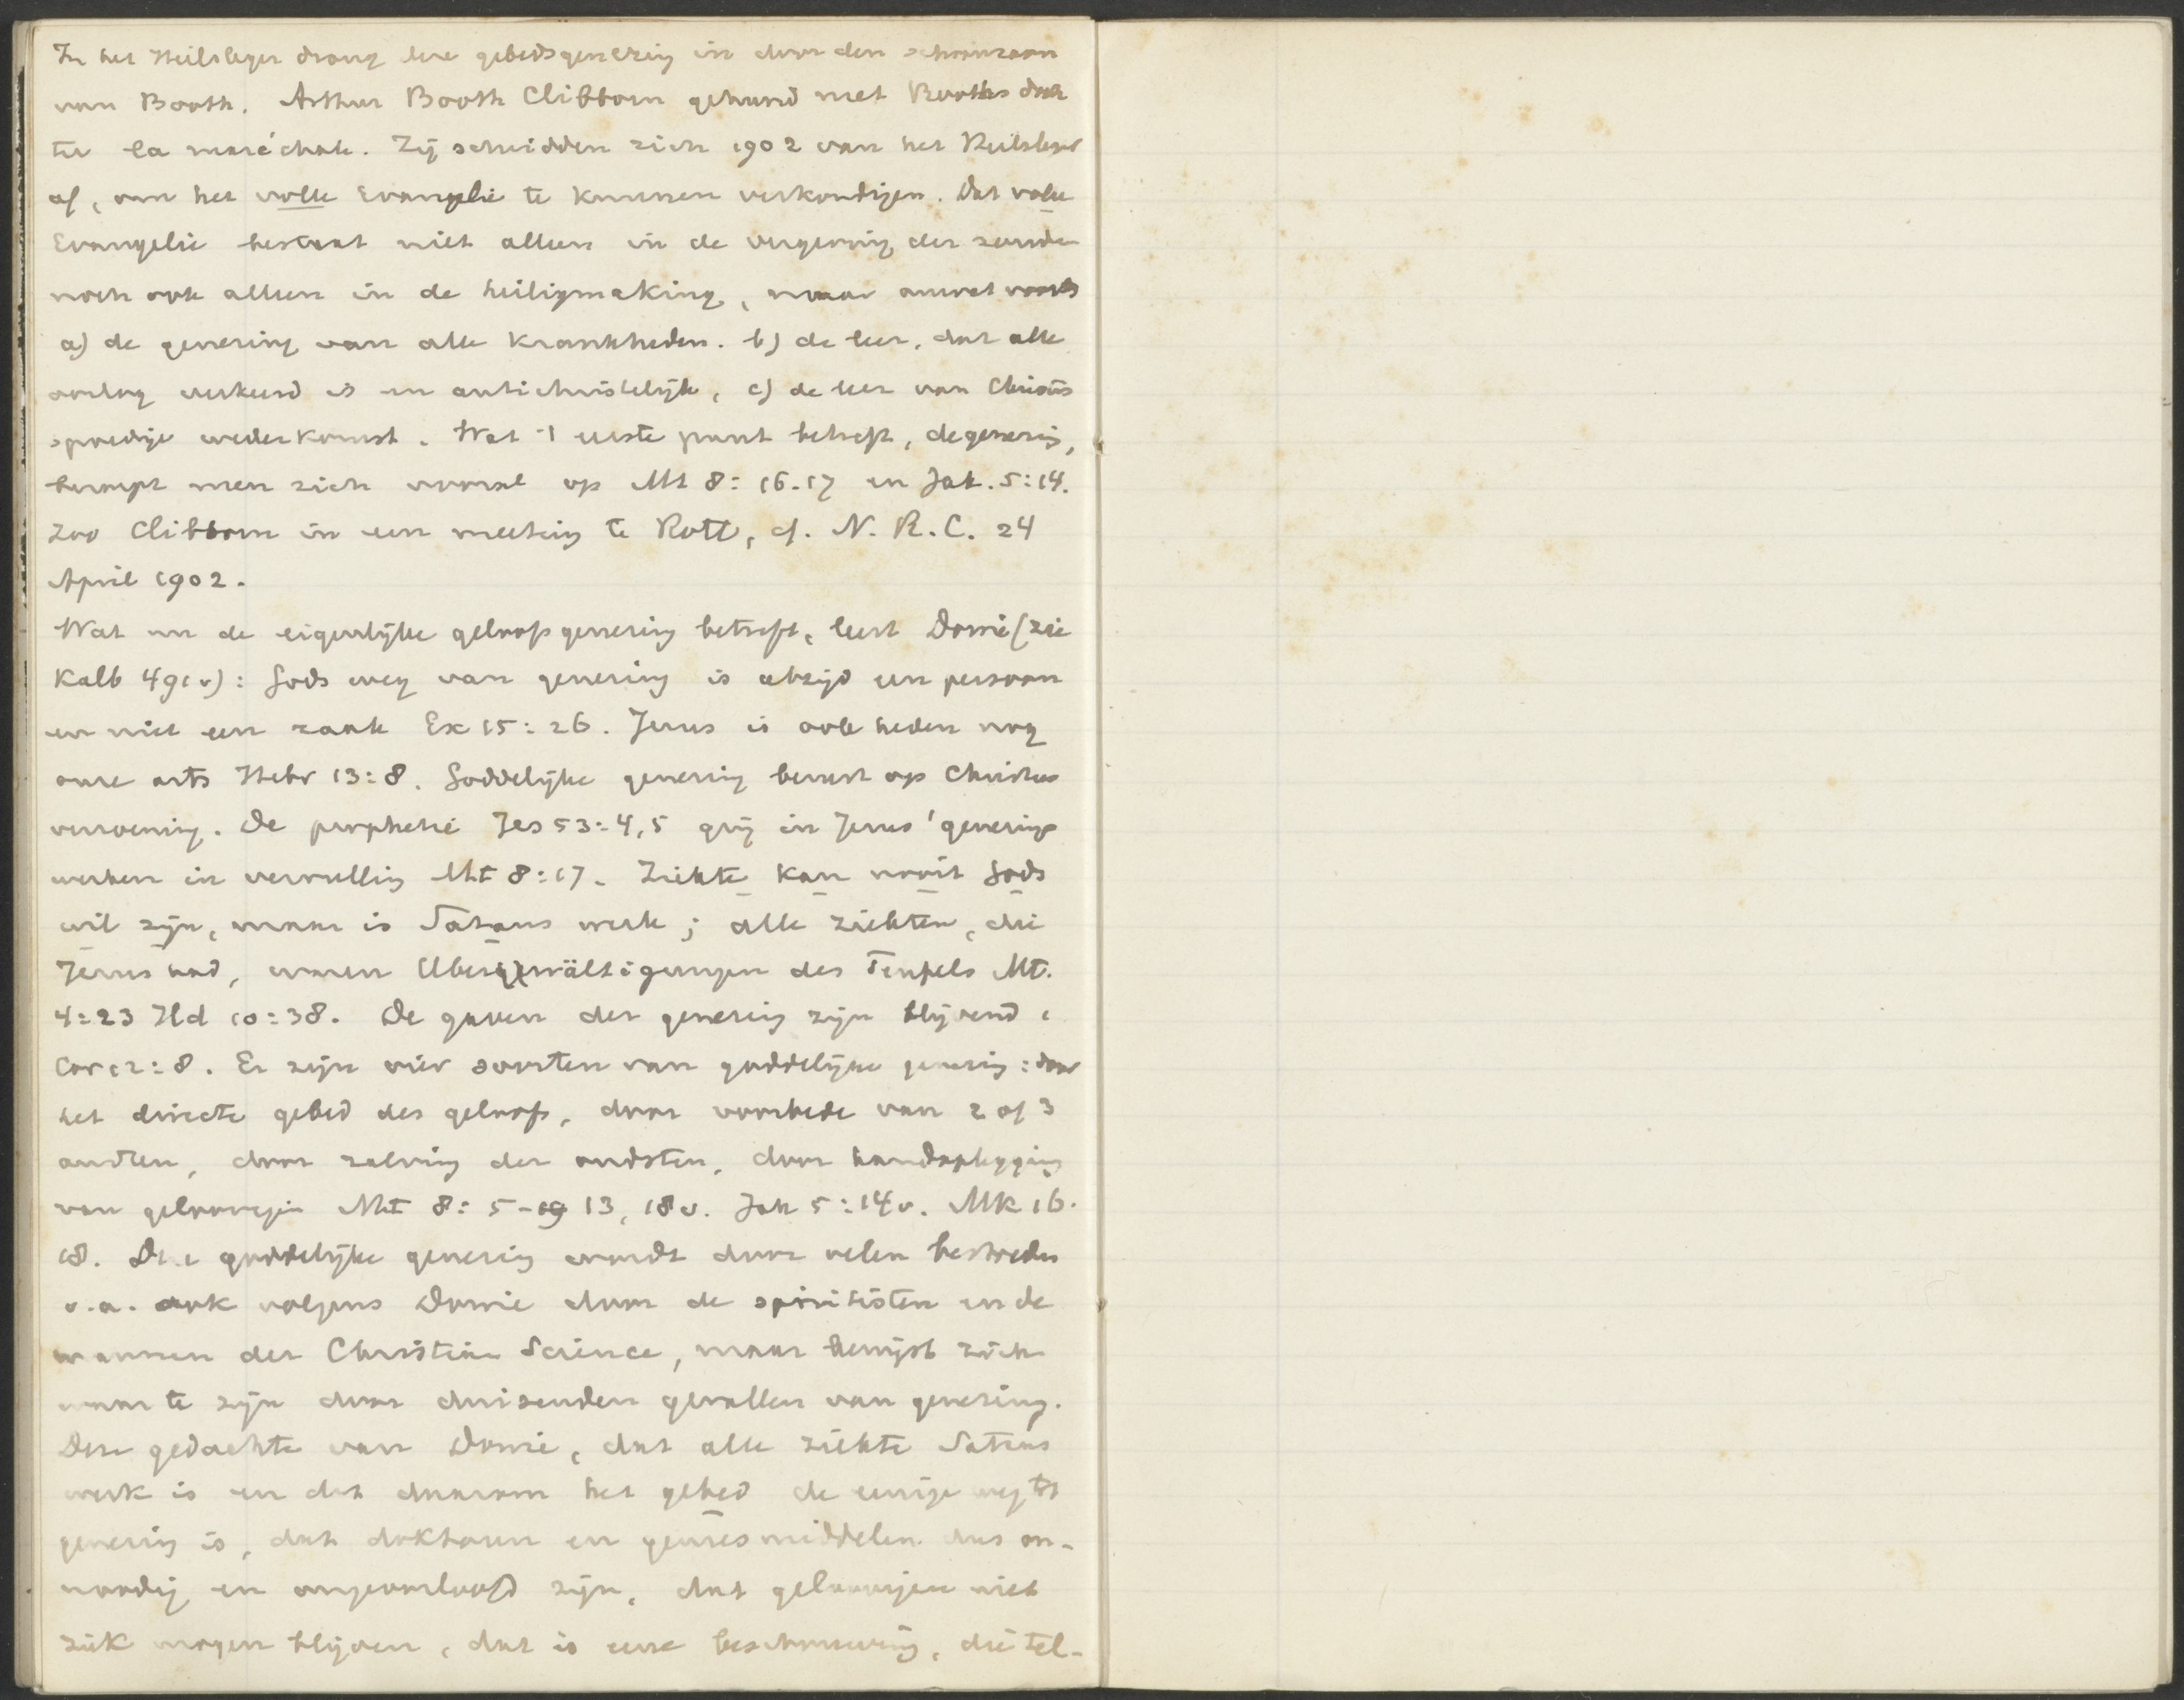 In het Heilsleger drong deze gebedsgenezing in door den schoonzoon
van Booth. Arthur Booth Clibborn gehuwd met Booths doch
ter la maréchale. Zij scheidden zich 1902 van het Heilsleger
af, om het volle Evangelie te kunnen verkondigen. Dat volle
Evangelie bestaat niet alleen in de vergeving der zonde
noch ook alleen in de heiligmaking, maar omvat voorts
a) de genezing van alle krankheden. b) de leer, dat alle
oorlog verkeerd is en antichristelijk, c) de leer van Christus
spoedige wederkomst. Wat 't eerste punt betreft, de genezing,
beroept men zich vooral op Mt 8:16.17 en Jak. 5:14.
Zoo Clibborn in een meeting te Rott, cf. N.R.C. 24
April 1902.
Wat nu de eigenlijke geloofsgenezing betreft, leert Dowie (zie
Kalb 491v): Gods weg van genezing is altijd een persoon
en niet een zaak Ex 15:26. Jezus is ook heden nog
onze arts Hebr 13:8. Goddelijke genezing berust op Christus
verzoening. De prophetie Jes 53:4,5 ging in Jezus' genezings
werken in vervulling Mt 8:17. Ziekte kan nooit Gods
wil zijn, maar is Satans werk; alle ziekten, die
Jezus had, waren Uberwältigungen des Teufels Mt.
4:23 Hd 10:38. De gaven der genezing zijn blijvend 1
Cor 12:8. Er zijn vier soorten van goddelijke genezing: door
het directe gebed des geloofs, door voorbede van 2 of 3
andren, door zalving der oudsten, door handoplegging
van geloovigen Mt 8:5-13, 18v. Jak 5:14v. Mk 16.
18. Deze goddelijke genezing wordt door velen bestreden
o.a. ook volgens Dowie door de spiritisten en de
mannen der Christian Science, maar bewijst zich
waar te zijn door duizenden gevallen van genezing.
Deze gedachte van Dowie, dat alle ziekte Satans
werk is en dat daarom het gebed de eenige weg tot
genezing is, dat doktoren en geneesmiddelen dus on-
noodig en ongeoorloofd zijn, dat geloovigen niet
ziek mogen blijven, dat is eene beschouwing, die tel-